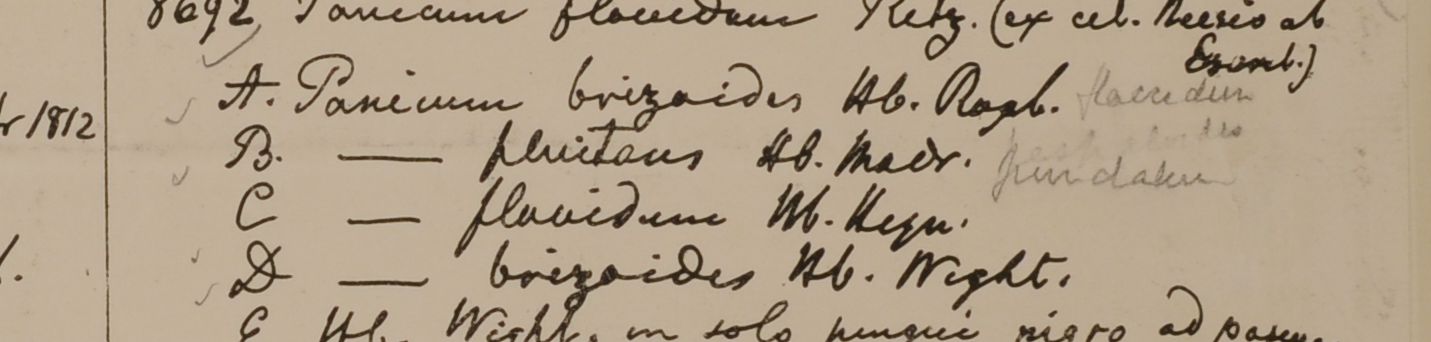 8692 Panicum flavidum Retz. (ex cel. Neesio ab
Esenb.)
A. Panicum brizoides Hb. Roxb. flavidum
r 1812
B. — fluitans Hb. Madr.
punctatum
C — flavidum Hb. Heyn.
D — brizoides Hb. Wight.
E Hb. Wight. in solo pingui nigro ad pascu